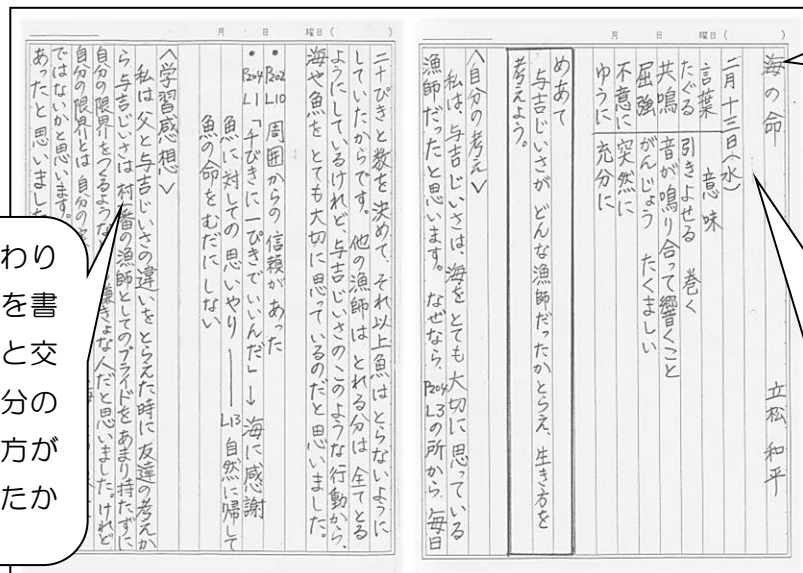 月　日　曜日（　　）
海の命　立松 和平
二月十三日(水)
言葉　意味
たぐる　引きよせる　巻く
共鳴　音が鳴り合って響くこと
屈強　がんじょう　たくましい
不意に　突然に
ゆうに　充分に
めあて
与吉じいさが どんな漁師だったかとらえ、生き方を
考えよう。
＜自分の考え＞
私は、与吉じいさは、海をとても大切に思っている
漁師だったと思います。なぜなら、P204 L3の所から、毎日
月　日　曜日（　　）
二十ぴきと数を決めて、それ以上魚はとらないように
していたからです。他の漁師は とれる分は 全てとる
ようにしているけれど、与吉じいさのこのような行動から、
海や魚を とても大切に思っているのだと思いました。
• P202 L10 周囲からの信頼があった
• P204 L1 「千びきに一ぴきでいいんだ」→海に感謝
魚に対しての思いやり ― L13 自然に帰して
魚の命をむだにしない
＜学習感想＞
私は父と与吉じいさの違いをとらえた時に 友達の考えか
ら与吉じいさは 村一番の漁師としてのプライドをあまり持たずに
自分の限界をつくるような けんきょな人だと思いました。けれど
自分の限界とは 自分の
ではないかと思います。
あったと思いました
わり
を書
と交
分の
方が
たか